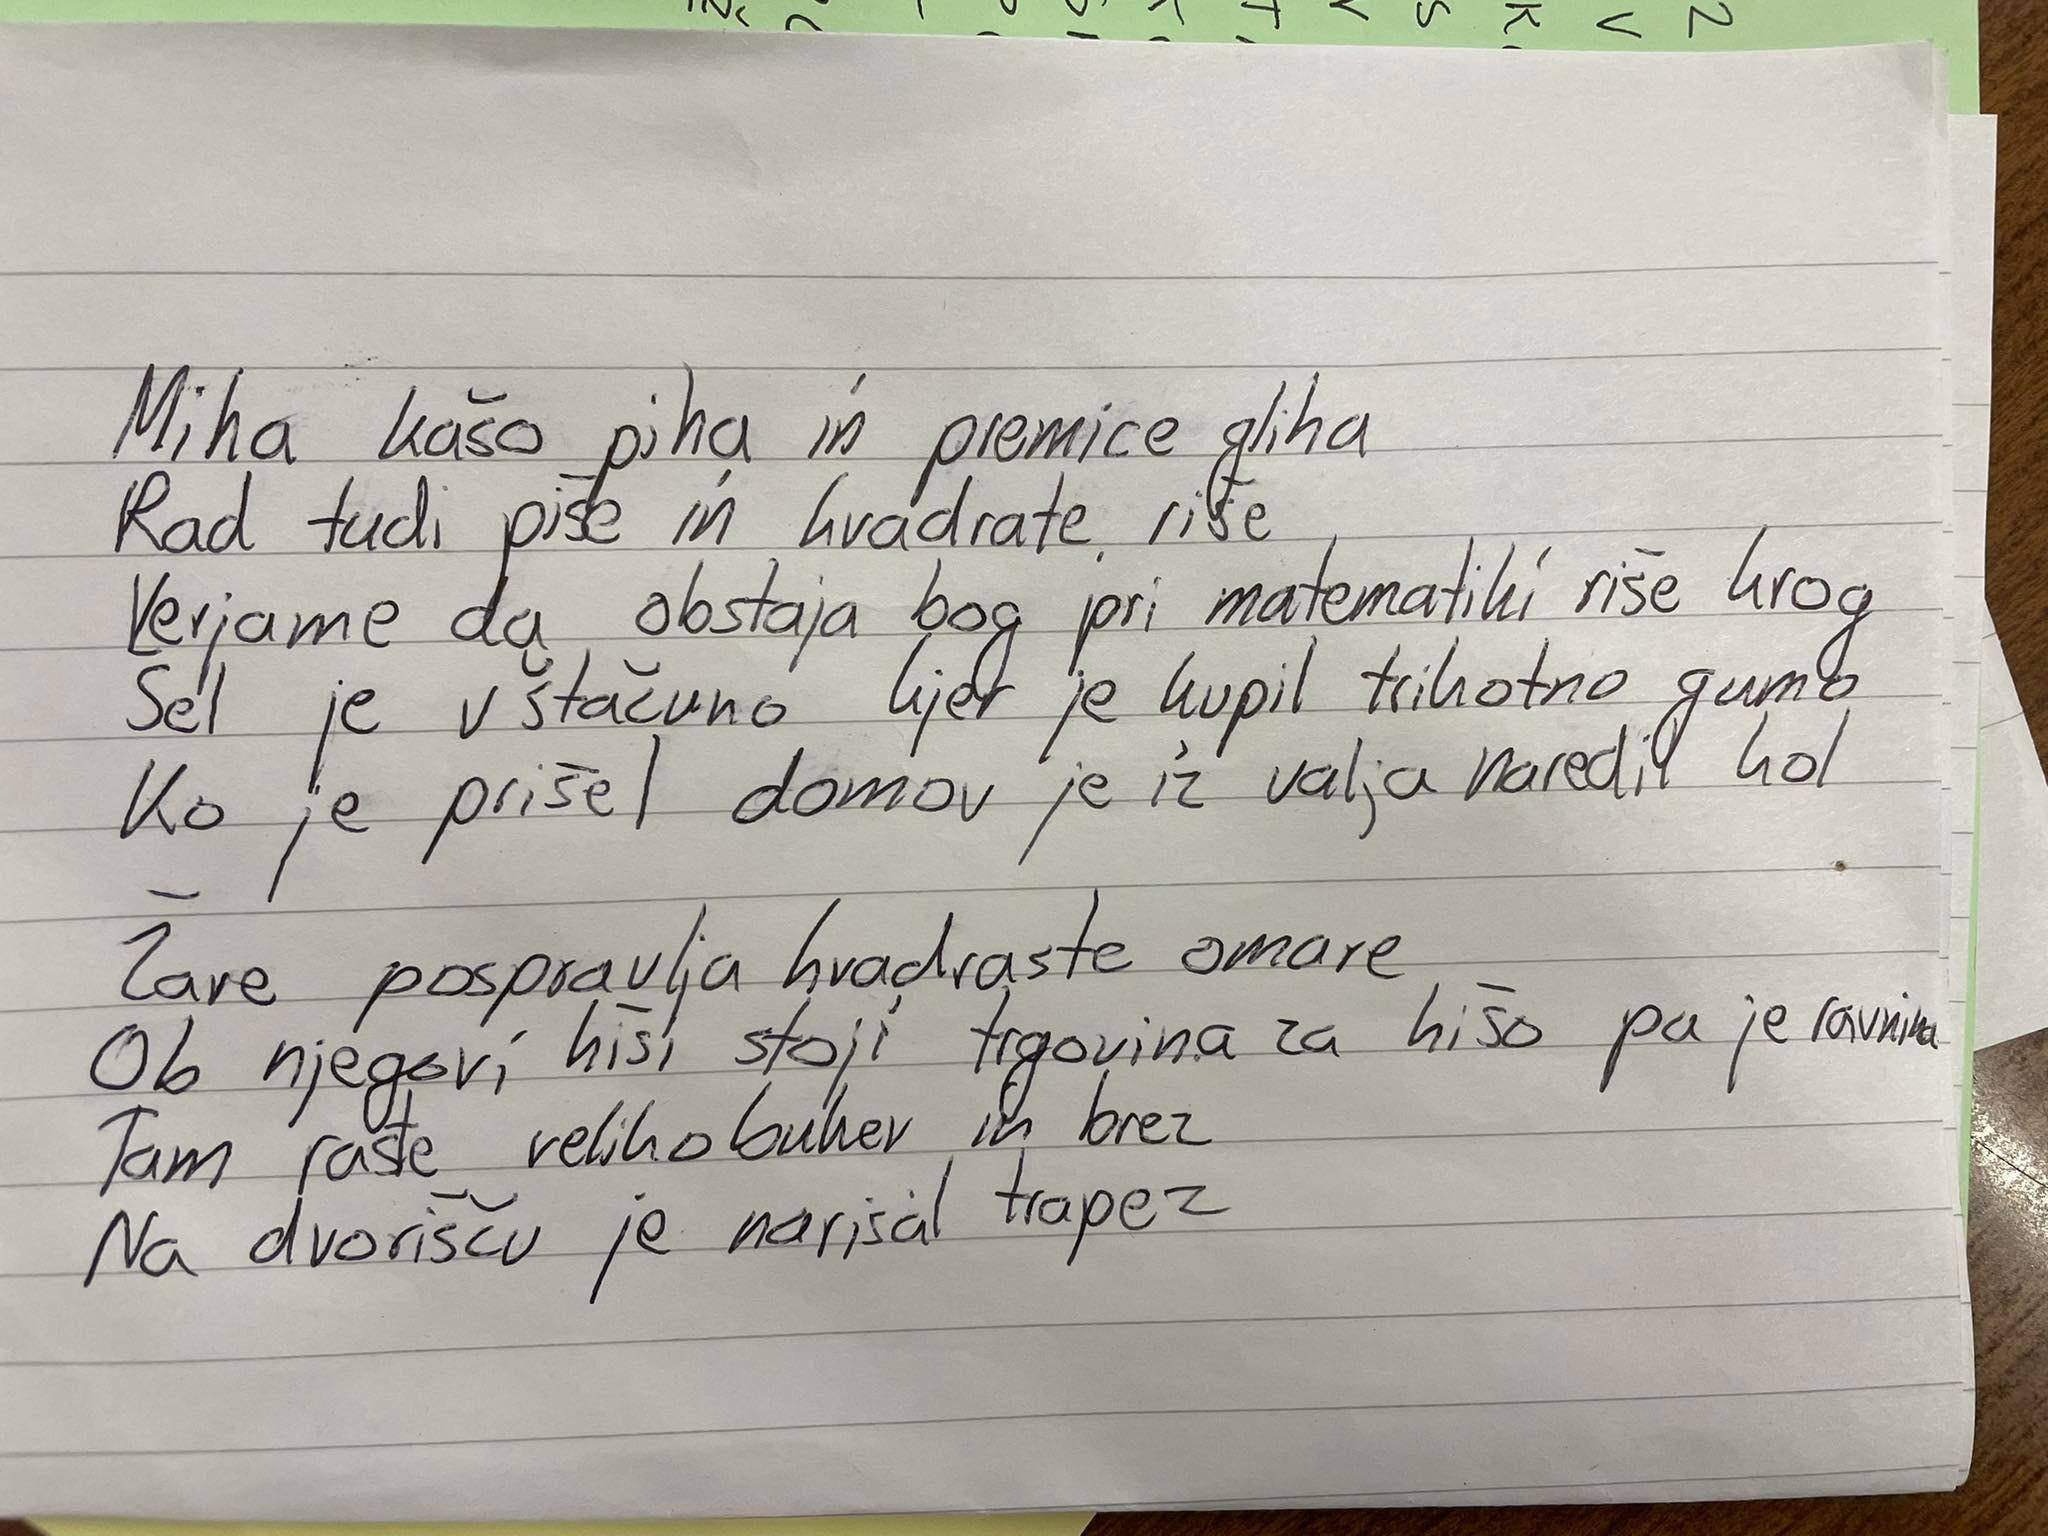 Miha kašo piha in premice gliha
Rad tudi piše in kvadrate riše
Verjame da obstaja bog pri matematiki riše krog
Šel je v štačuno kjer je kupil trikotno gumo
Ko je prišel domov je iz valja naredil kol
Žare pospravlja kvadraste omare
Ob njegovi hiši stoji trgovina za hišo pa je ravnina
Tam raste veliko bukev in brez
Na dvorišču je narisal trapez